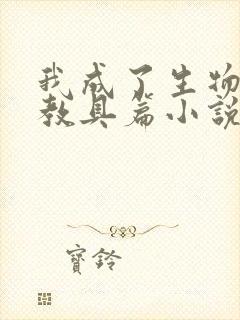 我成了生物
教具篇小說
寶鈴